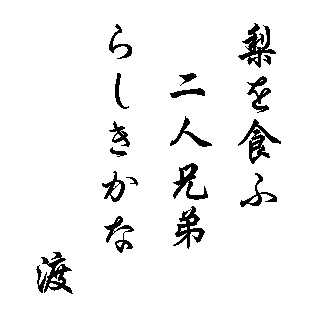 梨を食ふ
二人兄弟
らしきかな
渡